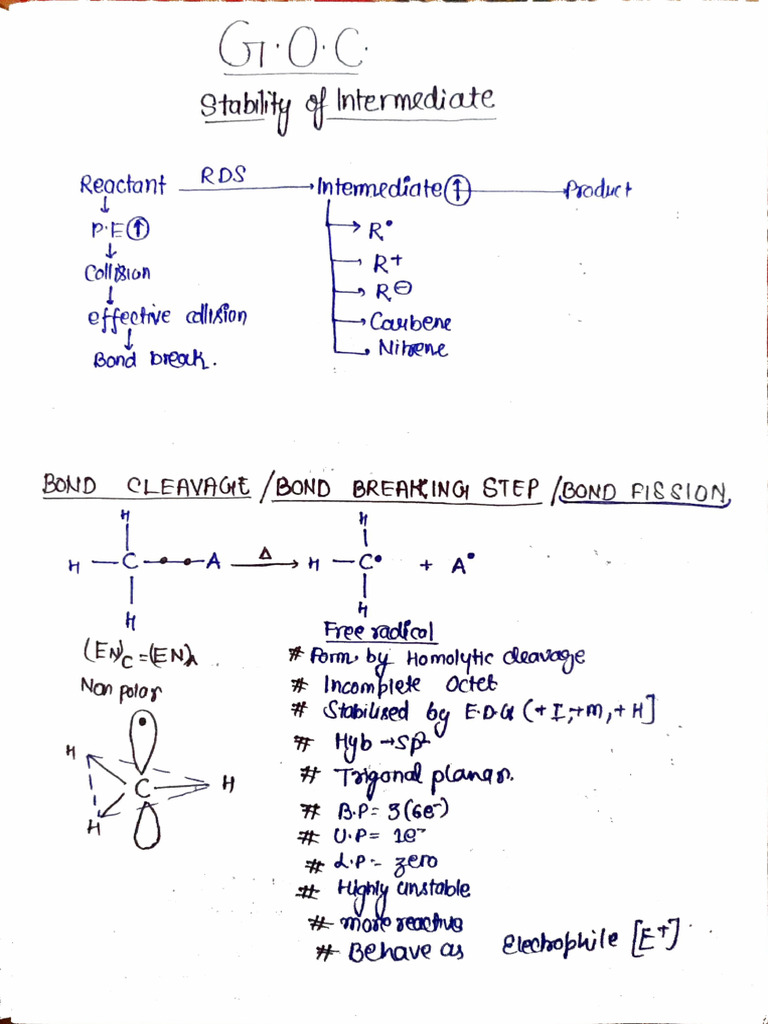 G.O.C.
Stability of Intermediate
Reactant RDS → Intermediate ↑ → Product
↓
P.E ↑
↓
Collision
↓
effective collision
↓
Bond break.
→ R•
→ R+
→ R⊖
→ Carbene
→ Nitrene
BOND CLEAVAGE / BOND BREAKING STEP / BOND FISSION
H H
H — C —•—•— A Δ → H — C• + A•
H H
(EN)C = (EN)A
Non polar
H
C H
H
Free radical
# Form by Homolytic cleavage
# Incomplete Octet
# Stabilised by E.D.G (+I, +m, +H]
# Hyb → sp2
# Trigonal planar.
# B.P = 3 (6e-)
# U.P = 1e-
# L.P = zero
# Highly unstable
# more reactive
# Behave as Electrophile [E+]